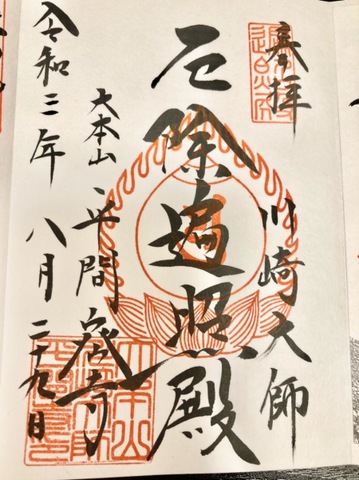 奉拝
川崎大師
厄除遍照殿
大本山 平間寺
令和三年 八月 二十九日